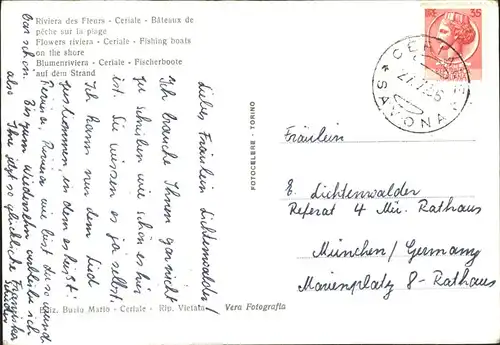 Riviera des Fleurs - Ceriale - Bâteaux de
pêche sur la plage
Flowers riviera - Ceriale - Fishing boats
on the shore
Blumenriviera - Ceriale - Fischerboote
auf dem Strand
LIRE 35
CERIALE
27.7.56
* SAVONA *
Liebes Fräulein Lichtenwalder!
Ich brauche Ihnen gar nicht
zu schreiben wie schön es hier
ist. Sie wissen es ja selbst.
Ich kann nur dem Lied
zustimmen, in dem es heißt:
Rimini, Rimini wie bist du so wunder
bar schön. Bis zum Wiedersehn verbleibe ich
also Ihre jetzt so glückliche Franziska
FOTOCELERE - TORINO
Fräulein
E. Lichtenwalder
Referat 4 Mü. Rathaus
München/Germany
Marienplatz 8 - Rathaus
Ediz. Busto Mario - Ceriale - Rip. Vietata
Vera Fotografia